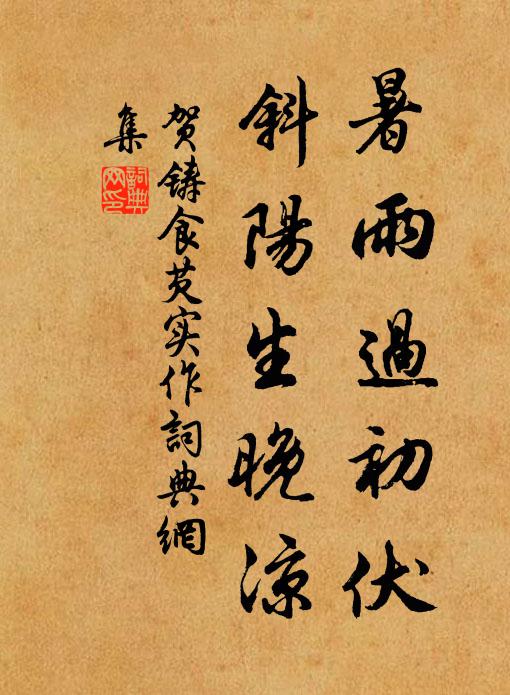 暑雨過初伏
斜陽生晚涼
賀鑄食芡实作詞典網
集
詞典網印